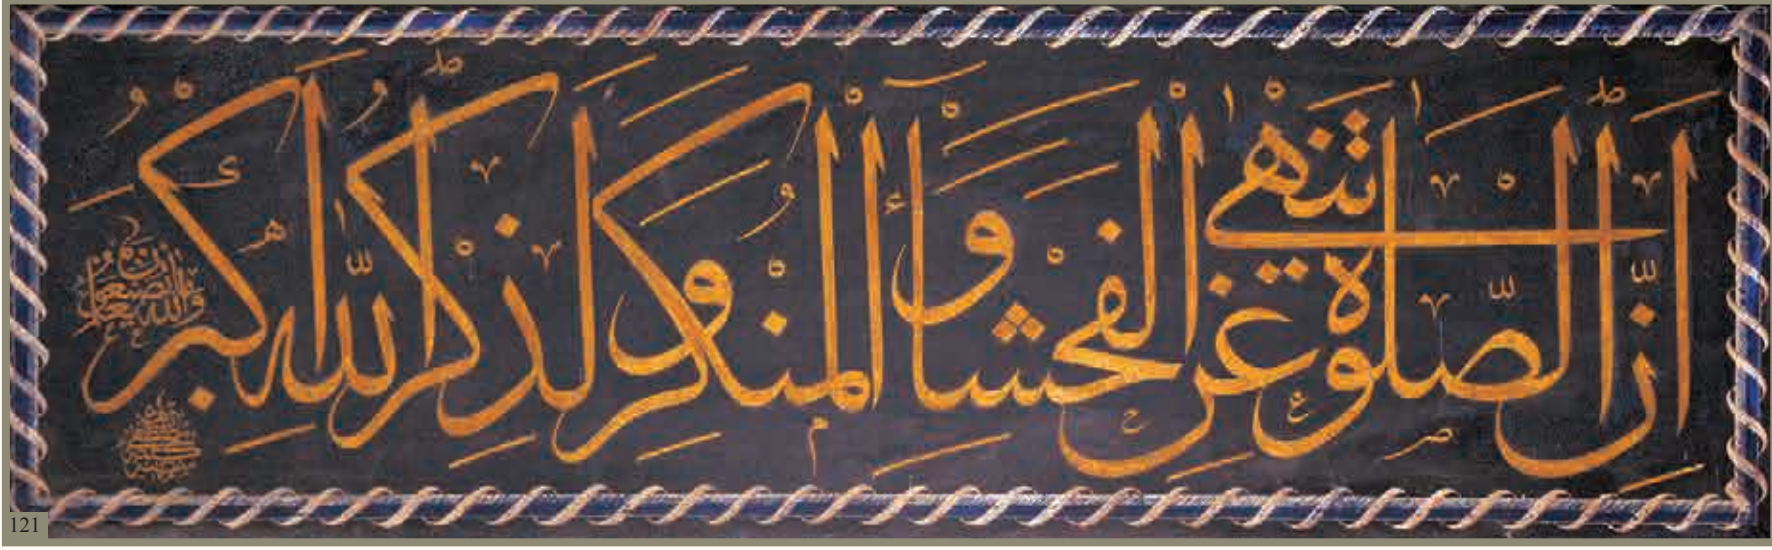 إِنَّ الصَّلٰوةَ تَنْهٰى عَنِ الْفَحْشَاءِ وَالْمُنْكَرِ وَلَذِكْرُ اللّٰهِ أَكْبَرُ
وَاللّٰهُ يَعْلَمُ مَا تَصْنَعُونَ
121